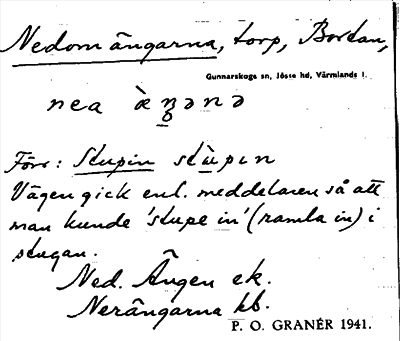 Nedom ängarna, torp, Bortan,
Gunnarskogs sn, Jösse hd, Värmlands l.
nea
Förr: Stupin
Vägen gick enl. meddelaren så att
man kunde 'stupe in' (ramla in) i
stugan.
Ned. Ängen ek.
Nerängarna hb.
P. O. GRANÉR 1941.